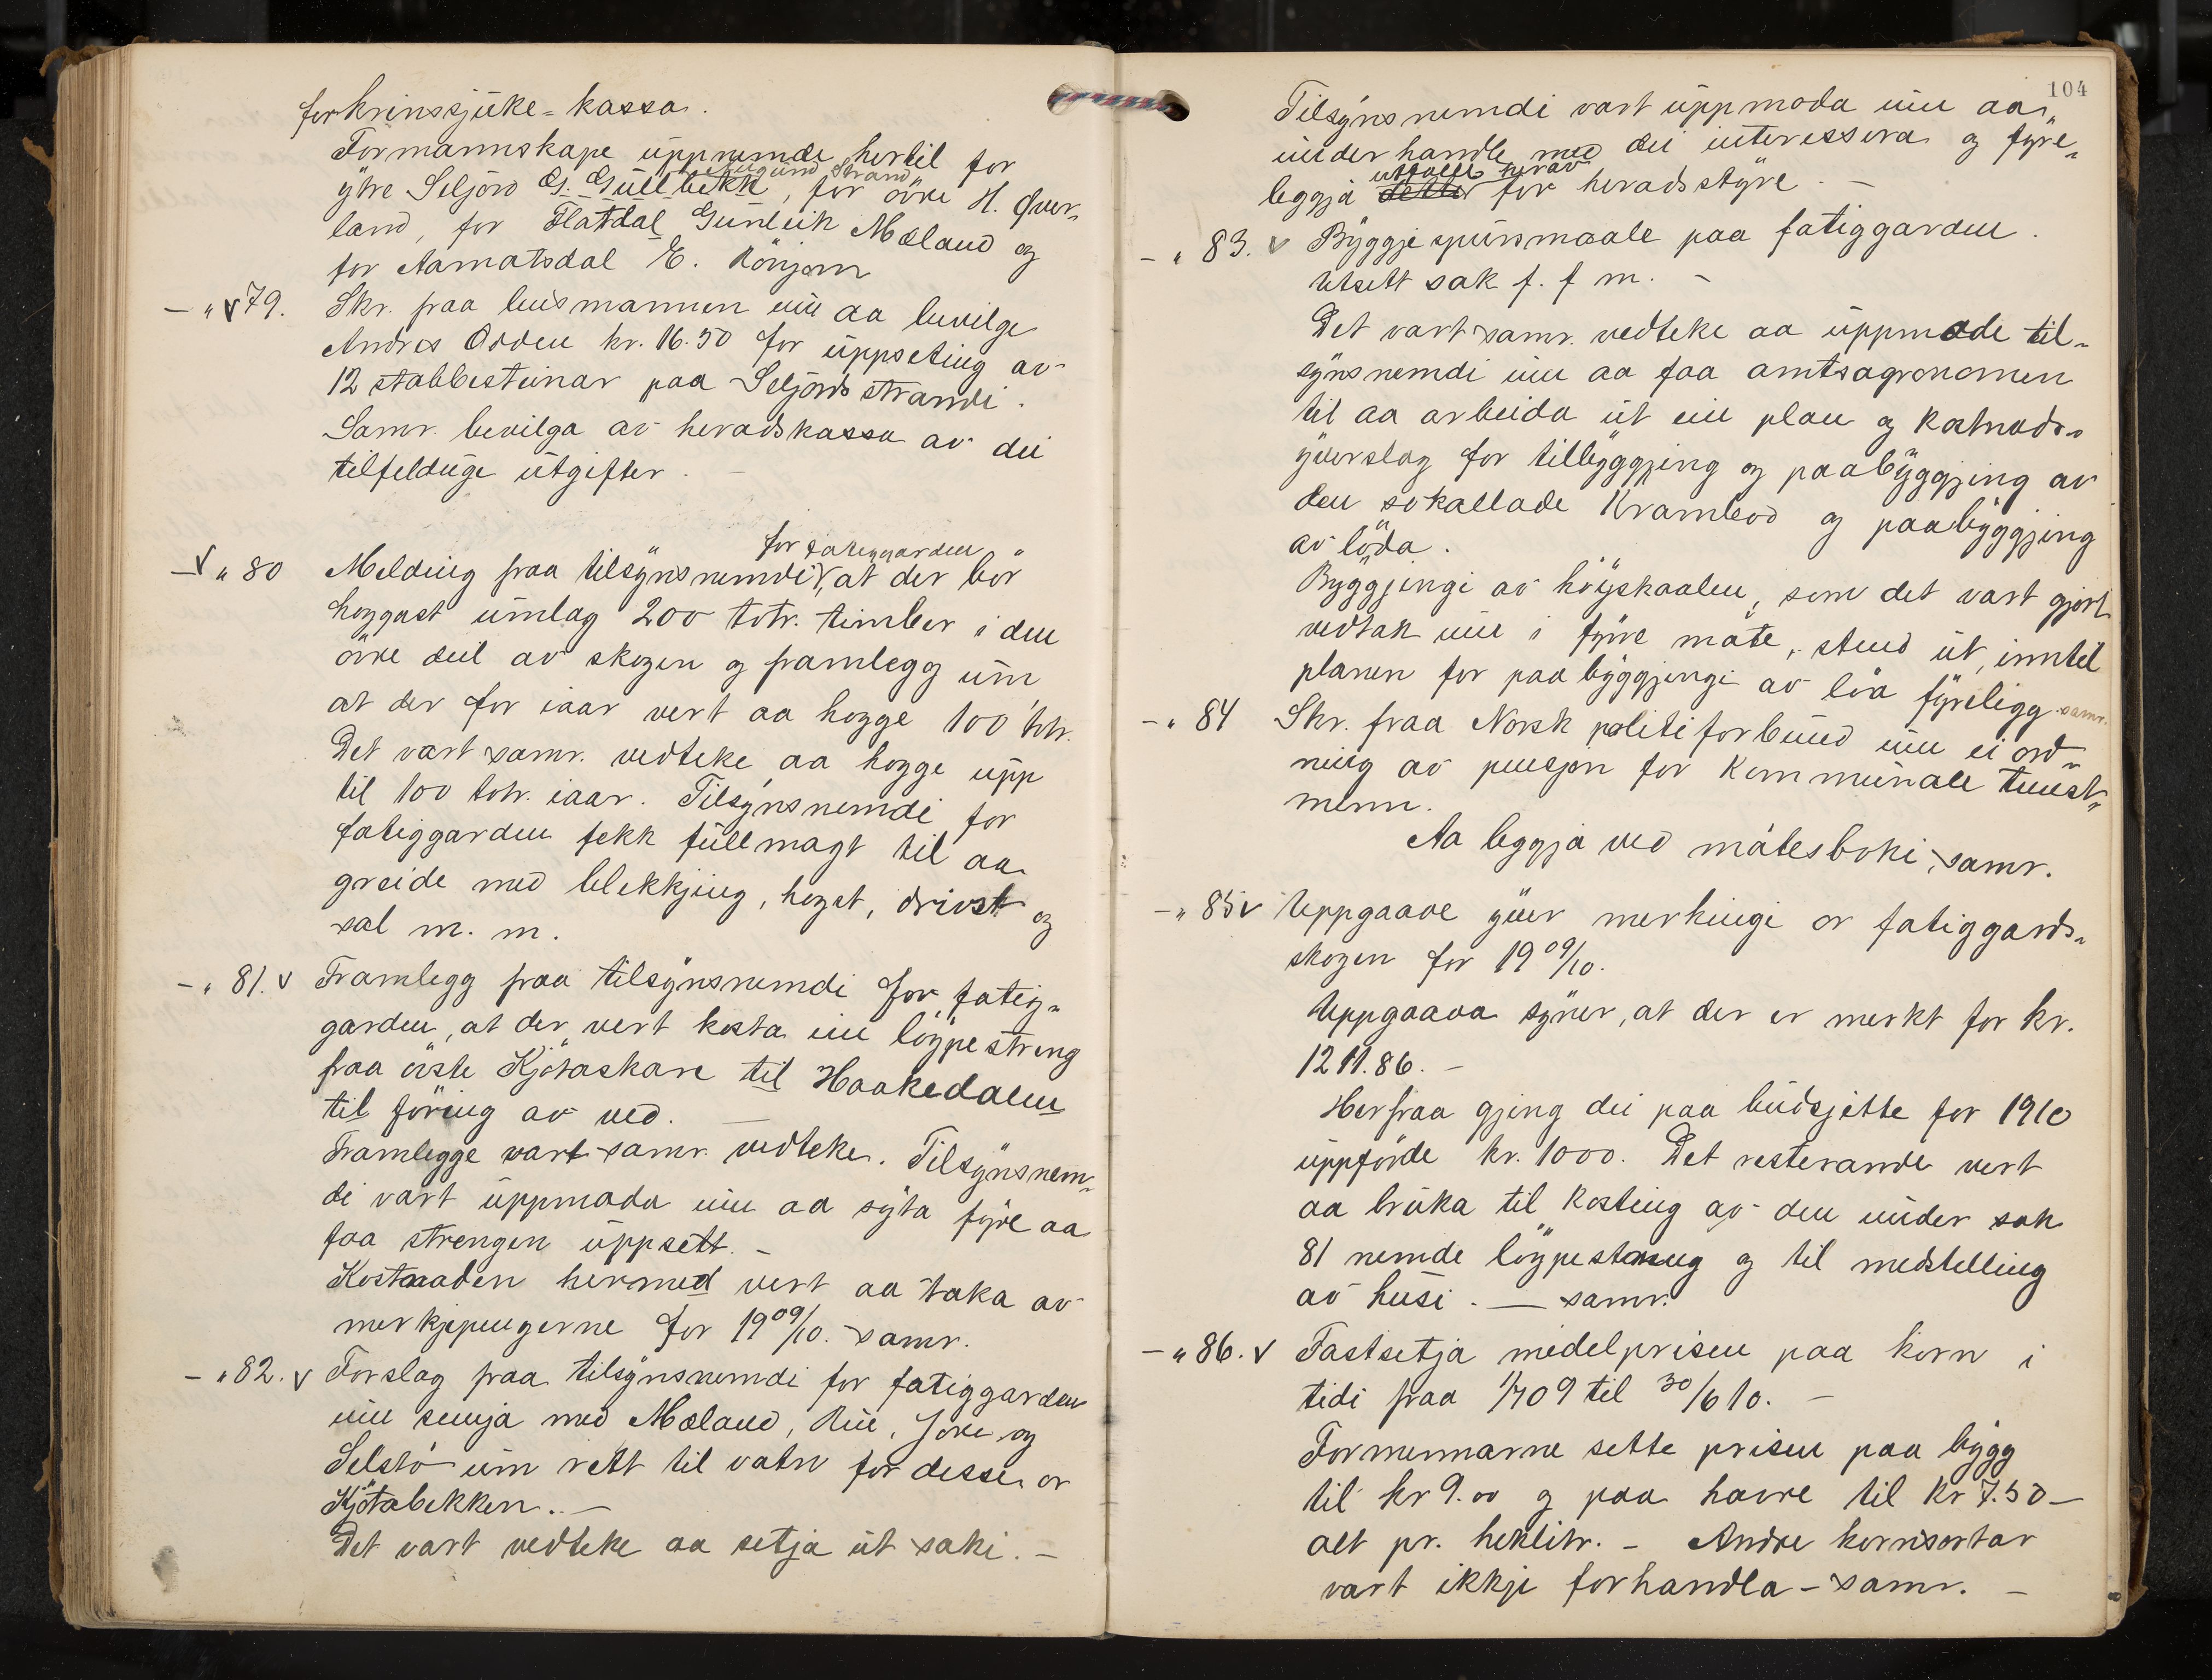 for krinssjuke-kassa.
Formannskape uppnemde hertil for
Augund Strand
ytre Seljord G. Gullbekk, for övre H. Över-
land, for Flatdal Gunleik Mæland og
for Aamotsdal E. Rönjom
- " v 79. Skr. fraa lensmannen um aa bevilge
Andres Odden kr. 16.50 for uppseting av
12 stabbesteinar paa Seljords strandi.
Samr. bevilga av heradskassa av dei
tilfelduge utgifter. -
for fatiggarden
- v " 80 Melding fraa tilsynsnemdi, at der bör
hoggast umlag 200 totr. timber i den
övre deil av skogen og framlegg um
at der for iaar vert aa hogge 100 totr.
Det vart samr. vedteke aa hogge upp
til 100 totr. iaar. Tilsynsnemdi for
fatiggarden fekk fullmagt til aa
greide med blekkjing, hogst, drivst og
sal m. m.
- " 81. v Framlegg fraa tilsynsnemdi for fatig-
garden, at der vert kosta ein löypestreng
fraa övste Kjötaskare til Haakedalen
til föring av ved. -
Framlegge vart samr. vedteke. Tilsynsnem-
di vart uppmoda um aa syta fyre aa
faa strengen uppsett. -
Kostnaden hermed vert aa taka av
merkjepengerne for 1909/10. samr.
- " 82. v Forslag fraa tilsynsnemdi for fatiggarden
um semja med Mæland, Rue, Jore og
Selstö um rett til vatn for desse or
Kjötabekken. -
Det vart vedteke aa setja ut saki. -
104
Tilsynsnemdi vart uppmoda um aa
underhandle med dei interessera og fyre-
utfalle herav
leggja dette for heradsstyre. -
- " 83. v Byggjespursmaale paa fatiggarden.
Utsett sak f. f m. -
Det vart samr. vedteke aa uppmode til-
synsnemdi um aa faa amtsagronomen
til aa arbeida ut ein plan og kostnads-
yverslag for tilbyggjing og paabyggjing av
den sokallade Krambod og paabyggjing
av löda.
Byggjingi av höyskaalen, som det vart gjort
vedtak um i fyrre möte, stend ut, inntil
planen for paabyggjingi av löa fyreligg samr.
- " 84 Skr. fraa Norsk politiforbund um ei ord-
ning av pensjon for kommunale tenest-
menn.
Aa leggja ved mötesboki, samr.
- " 85 v Uppgaave yver merkingi or fatiggards-
skogen for 1909/10.
Uppgaava syner, at der er merkt for kr.
1211.86. -
Herfraa gjeng dei paa budsjette for 1910
uppförde kr. 1000. Det resterande vert
aa bruka til kosting av den under sak
81 nemde löypestreng og til medstelling
av husi. - samr.
- " 86. v Fastsetja medelprisen paa korn i
tidi fraa 1/7 09 til 30/6 10. -
Formennarne sette prisen paa bygg
til kr 9.00 og paa havre til kr 7.50 -
alt pr. heklitr. - Andre kornsortar
vart ikkje forhandla - samr. -